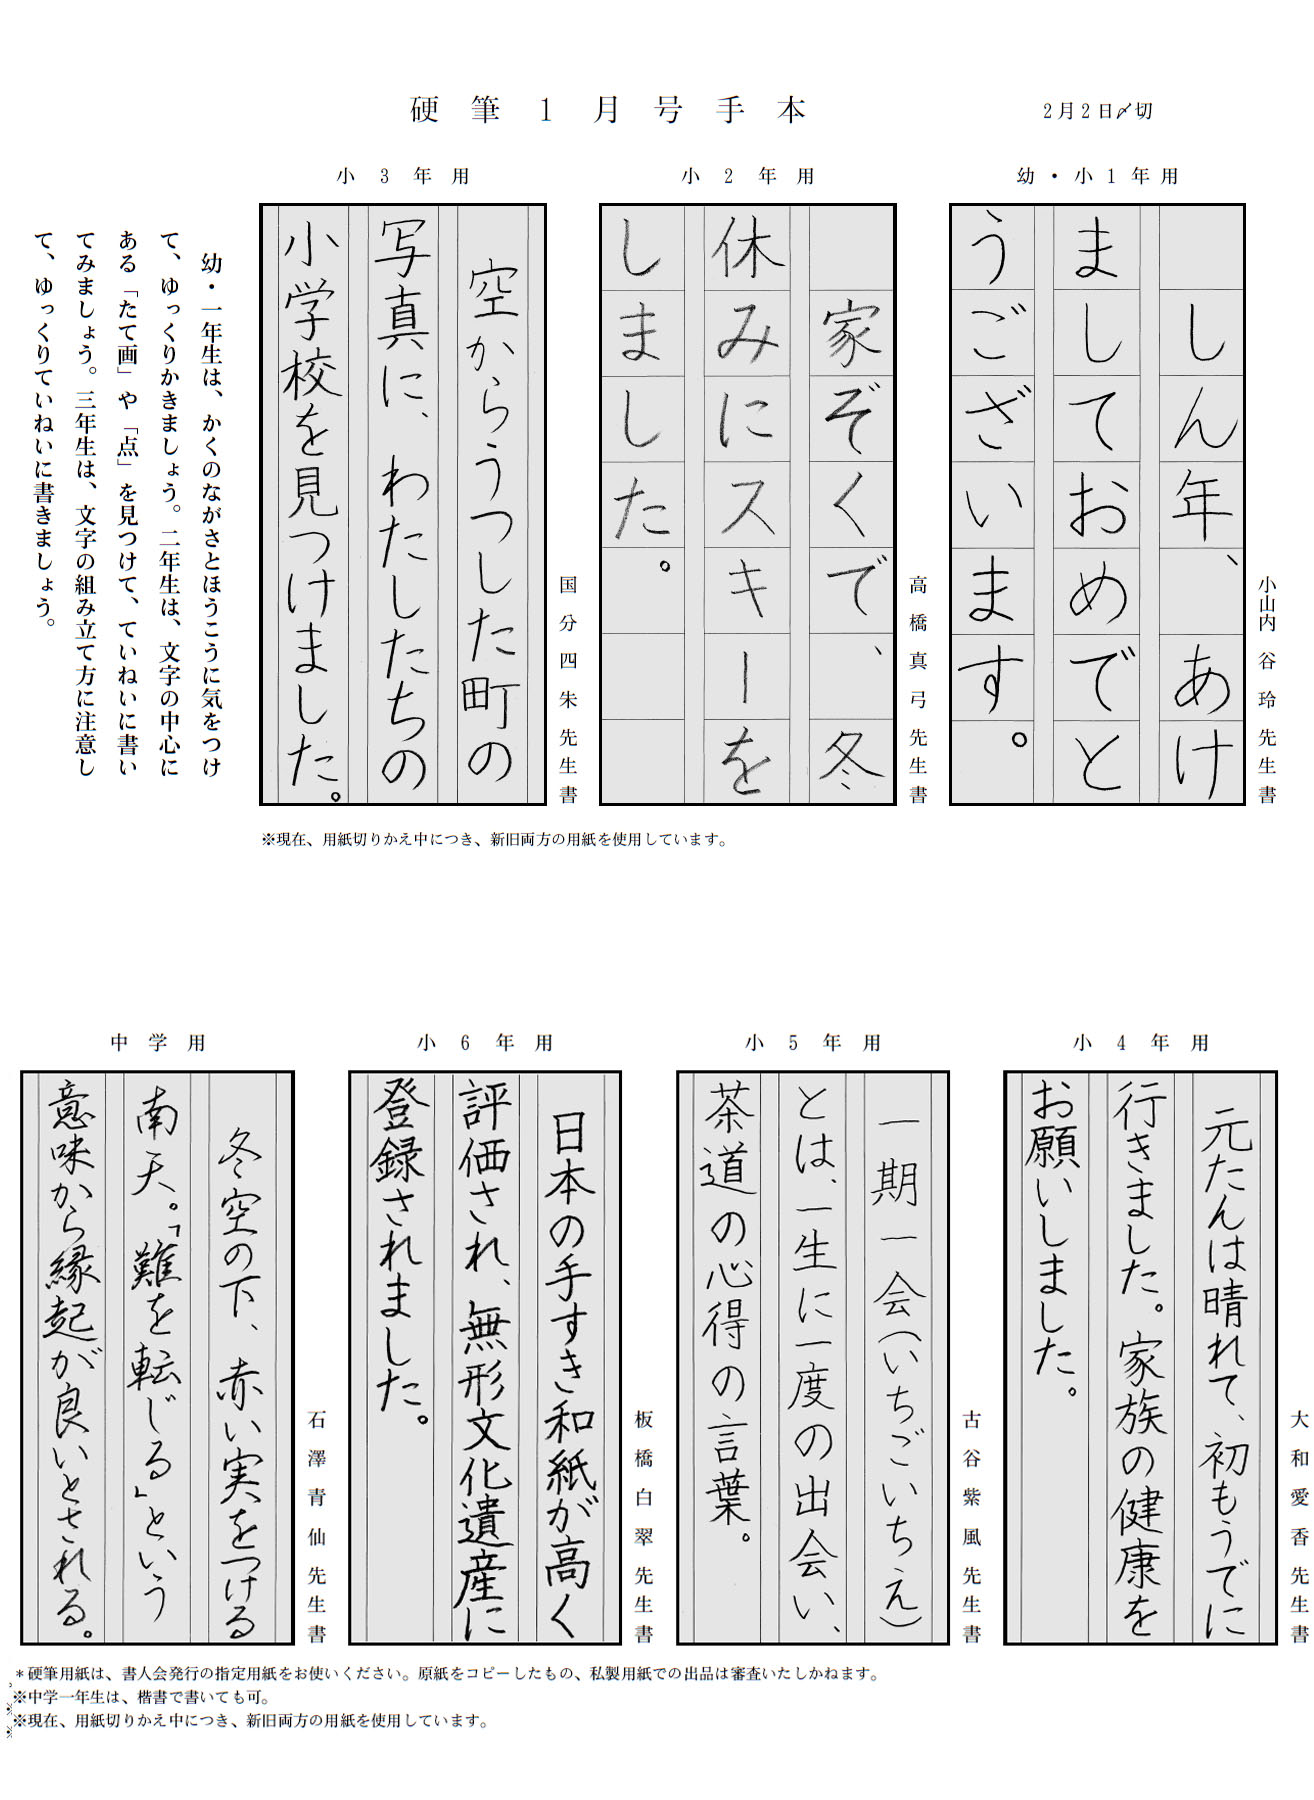 硬筆1月号手本
2月2日〆切
幼・小1年用
しん年、あけ
ましておめでと
うございます。
小山内谷玲先生書
小2年用
家ぞくで、冬
休みにスキーを
しました。
高橋真弓先生書
小3年用
空からうつした町の
写真に、わたしたちの
小学校を見つけました。
国分四朱先生書
幼・一年生は、かくのながさとほうこうに気をつけ
て、ゆっくりかきましょう。二年生は、文字の中心に
ある「たて画」や「点」を見つけて、ていねいに書い
てみましょう。三年生は、文字の組み立て方に注意し
て、ゆっくりていねいに書きましょう。
※現在、用紙切りかえ中につき、新旧両方の用紙を使用しています。
小4年用
元たんは晴れて、初もうでに
行きました。家族の健康を
お願いしました。
大和愛香先生書
小5年用
一期一会(いちごいちえ)
とは、一生に一度の出会い、
茶道の心得の言葉。
古谷紫風先生書
小6年用
日本の手すき和紙が高く
評価され、無形文化遺産に
登録されました。
板橋白翠先生書
中学用
冬空の下、赤い実をつける
南天。「難を転じる」という
意味から縁起が良いとされる。
石澤青仙先生書
＊硬筆用紙は、書人会発行の指定用紙をお使いください。原紙をコピーしたもの、私製用紙での出品は審査いたしかねます。
※中学一年生は、楷書で書いても可。
※現在、用紙切りかえ中につき、新旧両方の用紙を使用しています。